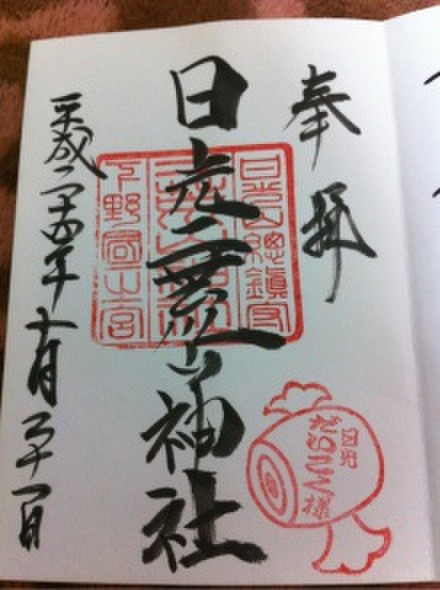 奉拝
日光二荒山神社
日光山總鎮守
二荒山神社
下野國一宮
日光
だいこく様
平成二十四年十一月二十一日